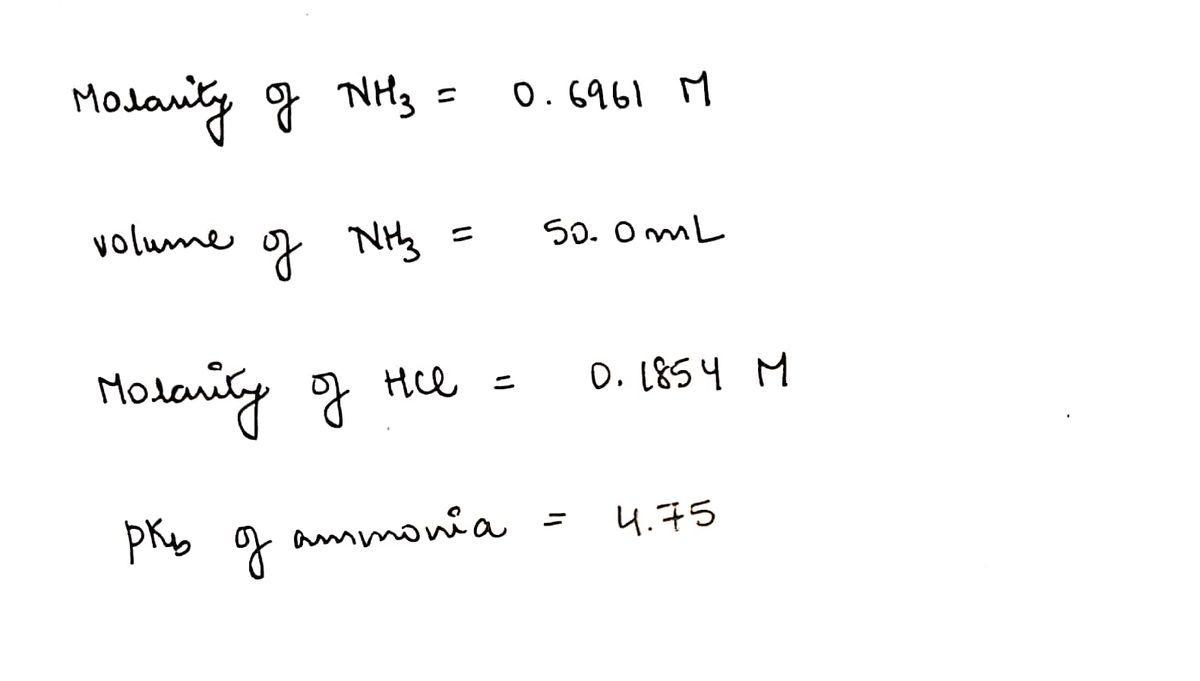 Molarity of NH3 = 0.6961 M
volume of NH3 = 50.0 mL
Molarity of HCl = 0.1854 M
pKb of ammonia = 4.75